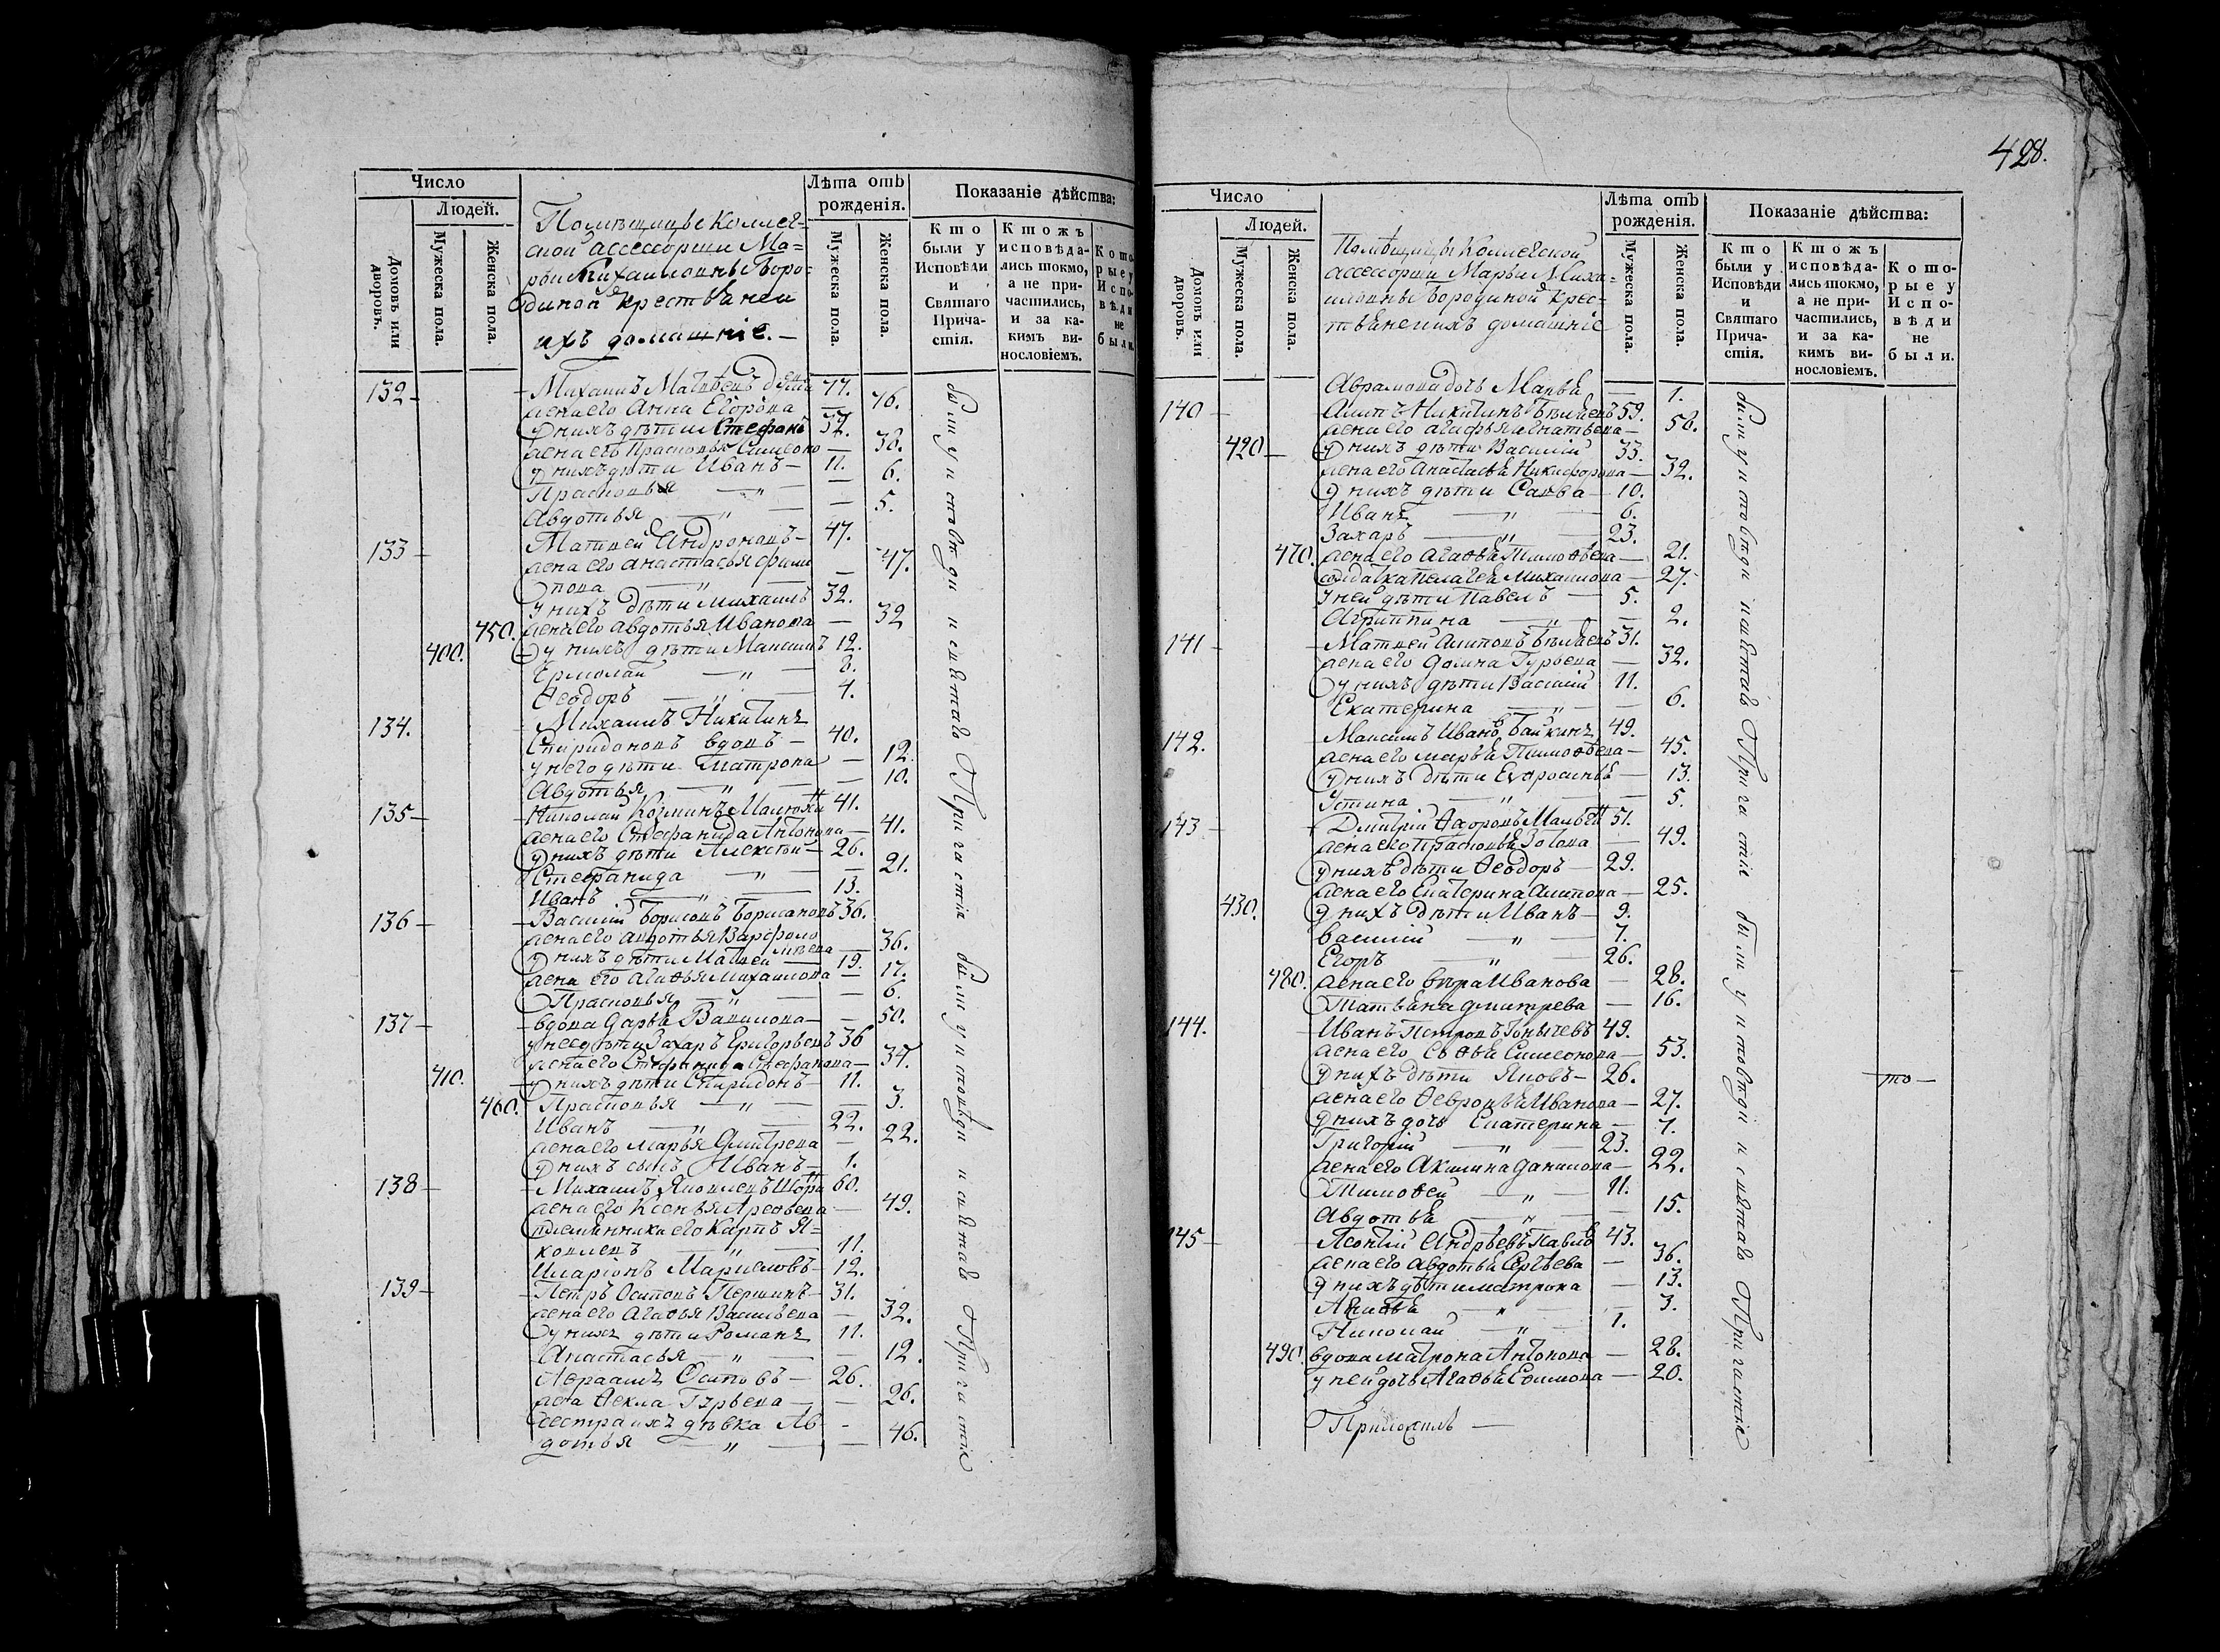 Число
Людей.
Домовъ или дворовъ.
Мужеска пола.
Женска пола.
Помѣщицы Коллег=
ской ассессорши Ма=
рьи Михаиловны Боро=
диной крестьяне и
ихъ домашніе. —
Лѣта отъ рожденія.
Мужеска пола.
Женска пола.
Показаніе дѣйства:
Кто были у Исповѣди и Святаго Причастія.
Ктожъ исповѣдались токмо, а не причастились, и за какимъ винословіемъ.
Которые у Исповѣди не были.
132 — Михаилъ Матвѣевъ 77.
жена его Анна Егорова — 76.
у нихъ дѣти Стефанъ 57.
жена его Прасковья Симеоно —
у нихъ дѣти Иванъ — 11.
Прасковья — „ — 6.
Авдотья — „ — 5.
133 — Матвей Андроновъ — 47.
жена его Анастасья Фили — 47.
пова — „ —
у нихъ дѣти Михаилъ 32.
450. жена его Авдотья Иванова — 32
400. у нихъ дѣти Максимъ 12.
Ермолай — „ — 8.
Ѳеодоръ — „ — 4.
134. — Михаилъ Никитинъ
Спиридоновъ вдовъ — 40.
у него дѣти Матрона — 12.
Авдотья — „ — 10.
135 — Николай Козминъ 41.
жена его Стефанида Антонова — 41.
у нихъ дѣти Алексѣй — 26.
Стефанида — „ — 21.
Иванъ — „ — 13.
136 — Василій Борисовъ Борисановъ 36.
жена его Авдотья Варфоло
мѣева — 36.
у нихъ дѣти Матвей — 19.
жена его Агаѳья Михаилова — 17.
Прасковья — „ — 6.
137 — вдова Дарья Вавилова — 50.
у нее дѣти Захаръ Григорьевъ 36
жена его Стефанида Стефанова — 37.
410. у нихъ дѣти Спиридонъ — 11.
460. Прасковья — „ — 3.
Иванъ — „ — 22.
жена его Марья Дмитрева — 22.
у нихъ сынъ Иванъ — 1.
138 — Михаилъ Яковлевъ 60.
жена его Ксенья Арефьева — 49.
племянники его Карпъ Я=
ковлевъ — „ — 11.
Иларіонъ Мариеловъ — 12.
139 — Петръ Осиповъ Першинъ — 31.
жена его Агаѳья Васильева — 32.
у нихъ дѣти Романъ 11.
Анастасья — „ — 12.
Авраамъ Осиповъ — 26.
жена Ѳекла Гурьева — 26.
сестра ихъ дѣвка Ав
дотья — „ — 46.
были у исповѣди и святаго Причастія были у исповѣди и святаго Причастія
428.
Число
Людей.
Домовъ или дворовъ.
Мужеска пола.
Женска пола.
Помѣщицы Коллегской
ассессорши Марьи Миха=
иловны Бородиной крес=
тьяне и ихъ домашніе
Лѣта отъ рожденія.
Мужеска пола.
Женска пола.
Показаніе дѣйства:
Кто были у Исповѣди и Святаго Причастія.
Ктожъ исповѣдались токмо, а не причастились, и за какимъ винословіемъ.
Которые у Исповѣди не были.
Аврамова дочь Марья — 1.
140 — Антипъ Никитинъ Бѣляевъ 59.
жена его Агафья Игнатьева — 56.
420 — у нихъ дѣти Василій 33.
жена его Анастасья Никифорова — 32.
у нихъ дѣти Савва — 10.
Иванъ — „ — 6.
Захаръ — „ — 23.
470. жена его Агаѳья Тимоѳѣева — 21.
солдатка Пелагея Михаилова — 27.
у ней дѣти Павелъ — 5.
Агриппина — „ — 2.
141 — Матвей Антиповъ Бѣляевъ 31.
жена его Домна Гурьева — 32.
у нихъ дѣти Василій 11.
Екатерина — „ — 6.
142. — Максимъ Ивановъ Байкинъ 49.
жена его Марья Тимоѳѣева — 45.
у нихъ дѣти Евфросинья — 13.
Устина — „ — 5.
143 — Дмитрій Ѳедоровъ 51.
жена его Прасковья Зотова — 49.
у нихъ дѣти Ѳеодоръ — 29.
жена его Екатерина Антипова — 25.
430. у нихъ дѣти Иванъ — 9.
Василій — „ — 7.
Егоръ — „ — 26.
480. жена его Вѣра Иванова — 28.
Татьяна Дмитрева — 16.
144. — Иванъ Петровъ 49.
жена его Симеонова — 53.
у нихъ дѣти Яковъ — 26.
то —
жена его Ѳевронья Иванова — 27.
у нихъ дочь Екатерина — 7.
Григорій — „ — 23.
жена его Акилина Данилова — 22.
Тимоѳей — „ — 11.
Авдотья — „ — 15.
145 — Леонтій Андрѣевъ 43.
жена его Авдотья Сергѣева — 36.
у нихъ дѣти Матрона — 13.
„ — 3.
Николай — „ — 1.
490. вдова Матрона Антонова — 28.
у ней дочь Агаѳья — 20.
были у исповѣди и святаго Причастія были у исповѣди и святаго Причастія